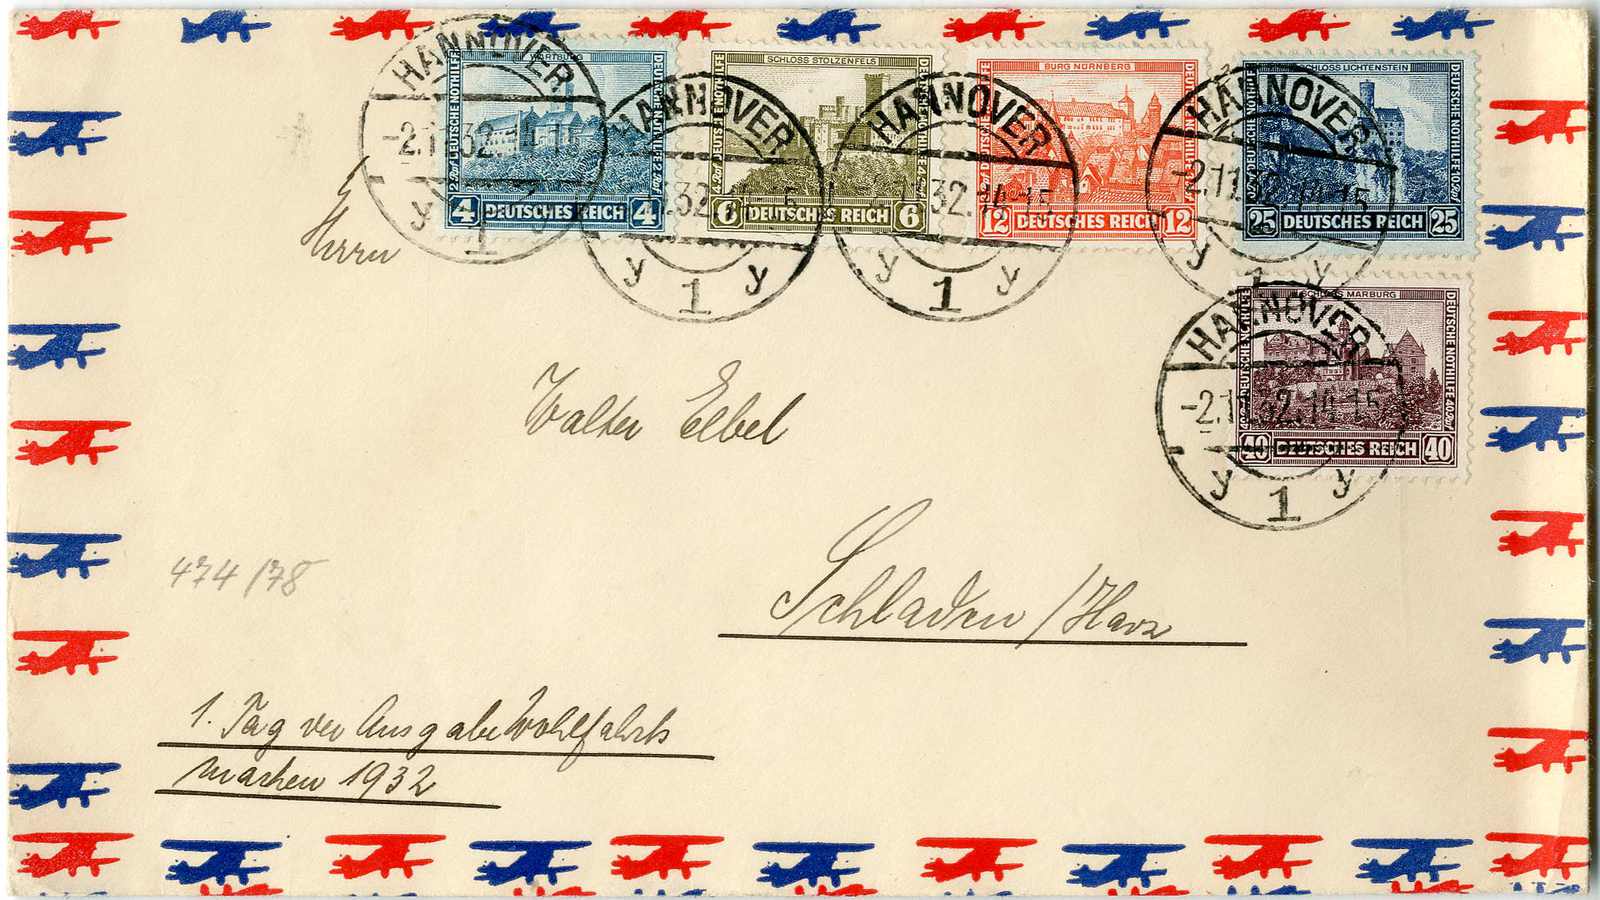 WARTBURG
DEUTSCHE NOTHILFE
4 DEUTSCHES REICH 4
SCHLOSS STOLZENFELS
DEUTSCHE NOTHILFE
6 DEUTSCHES REICH 6
BURG NÜRNBERG
DEUTSCHE NOTHILFE
12 DEUTSCHES REICH 12
SCHLOSS LICHTENSTEIN
DEUTSCHE NOTHILFE
25 DEUTSCHES REICH 25
SCHLOSS MARBURG
DEUTSCHE NOTHILFE
40 DEUTSCHES REICH 40
HANNOVER
-2.11.32.14-15
y 1 y
HANNOVER
32.14-15
y 1 y
HANNOVER
32.14-15
y 1 y
HANNOVER
-2.11.32.14-15
y 1 y
HANNOVER
-2.11.32.14-15
y 1 y
Herrn
Walter Elbel
Schladen/Harz
474/78
1. Tag der Ausgabe Wohlfahrts
marken 1932